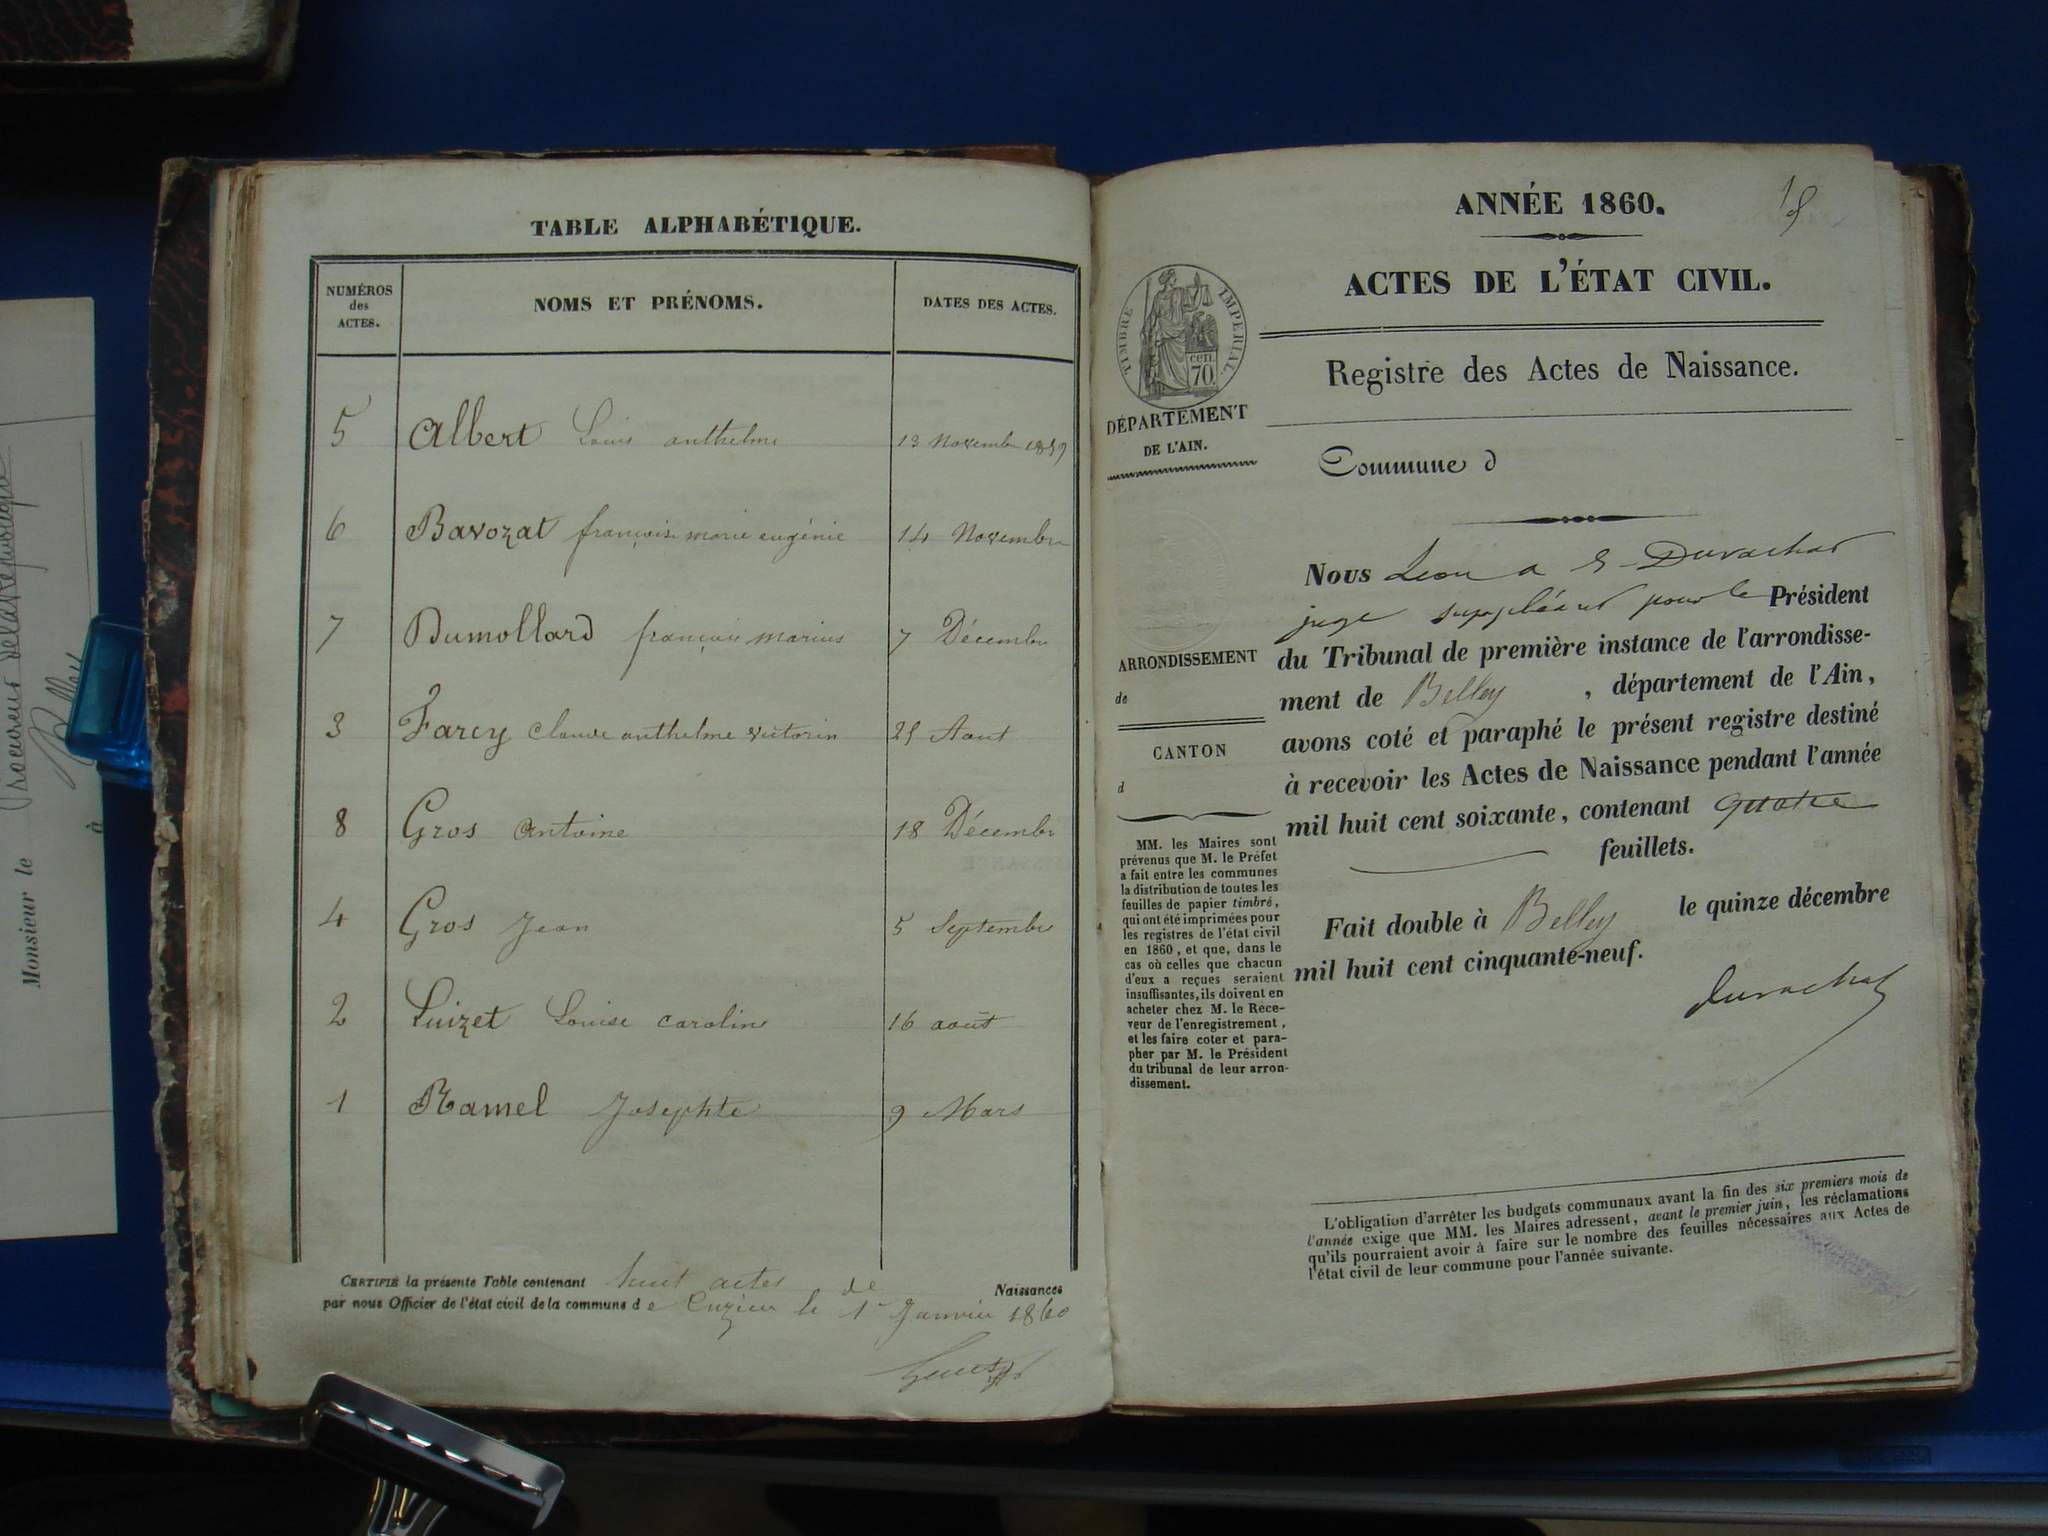 Monsieur le Procureur de la République
à Belley
TABLE ALPHABÉTIQUE.
NUMÉROS des ACTES.
NOMS ET PRÉNOMS.
DATES DES ACTES.
5 Albert Louis anthelme 13 Novembre 1859
6 Bavozat françoise marie eugénie 14 Novembre
7 Dumollard françois marius 7 Décembre
3 Farcy Claude anthelme victorin 25 Aout
8 Gros Antoine 18 Décembre
4 Gros Jean 5 Septembre
2 Luizet Louise caroline 16 août
1 Ramel Josephte 9 Mars
CERTIFIÉ la présente Table contenant huit actes de Naissances
par nous Officier de l'état civil de la commune de Cuzieu le 1er Janvier 1860
ANNÉE 1860.
ACTES DE L'ÉTAT CIVIL.
TIMBRE IMPERIAL
70 cen.
DÉPARTEMENT
DE L'AIN.
Registre des Actes de Naissance.
Commune d
ARRONDISSEMENT
de
CANTON
d
MM. les Maires sont
prévenus que M. le Préfet
a fait entre les communes
la distribution de toutes les
feuilles de papier timbré,
qui ont été imprimées pour
les registres de l'état civil
en 1860, et que, dans le
cas où celles que chacun
d'eux a reçues seraient
insuffisantes, ils doivent en
acheter chez M. le Rece-
veur de l'enregistrement,
et les faire coter et para-
pher par M. le Président
du tribunal de leur arron-
dissement.
Nous Léon Duvachat
juge suppléant pour le Président
du Tribunal de première instance de l'arrondisse-
ment de Belley, département de l'Ain,
avons coté et paraphé le présent registre destiné
à recevoir les Actes de Naissance pendant l'année
mil huit cent soixante, contenant quatre
feuillets.
Fait double à Belley le quinze décembre
mil huit cent cinquante-neuf.
Duvachat
L'obligation d'arrêter les budgets communaux avant la fin des six premiers mois de
l'année exige que MM. les Maires adressent, avant le premier juin, les réclamations
qu'ils pourraient avoir à faire sur le nombre des feuilles nécessaires aux Actes de
l'état civil de leur commune pour l'année suivante.